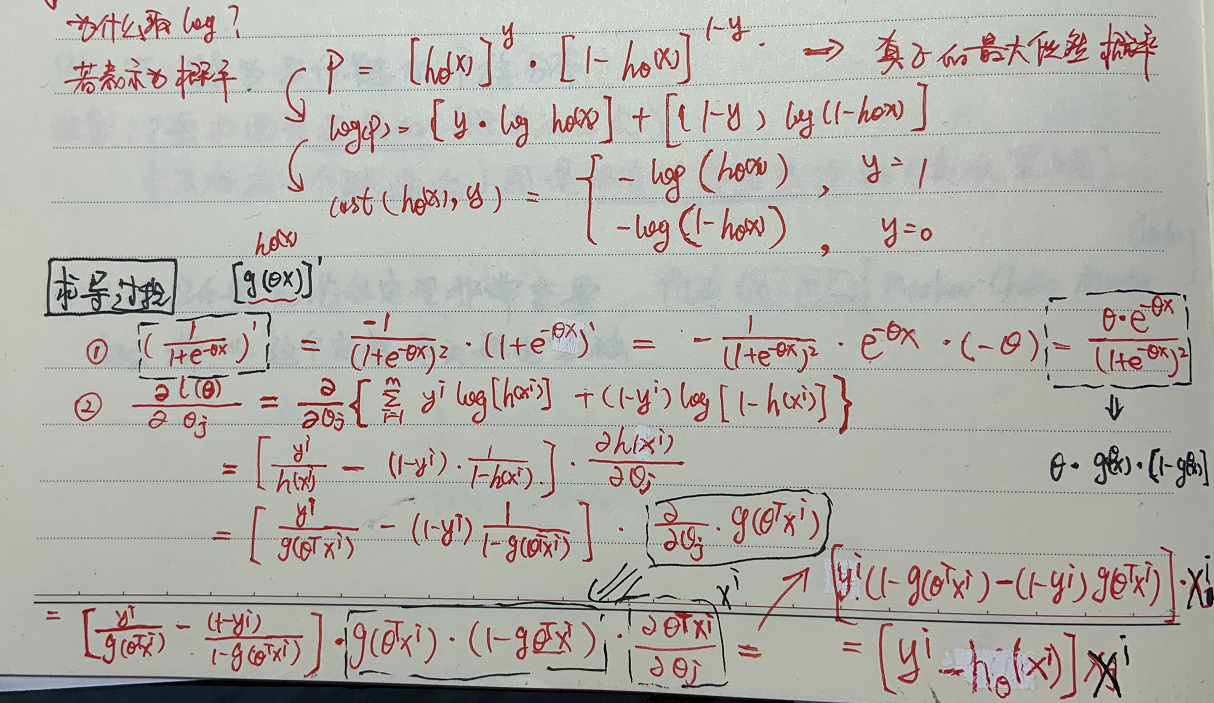 为什么取 log?
若表示为概率. P = [hθ(x)]^y · [1-hθ(x)]^{1-y}. → 真子的最大似然概率
log(P) = [y · log hθ(x)] + [(1-y) log(1-hθ(x)]
cost(hθ(x), y) = { -log(hθ(x)), y=1
-log(1-hθ(x)), y=0
hθ(x)
求导过程 [g(θx)]'
① (1/(1+e^{-θx}))' = -1/(1+e^{-θx})² · (1+e^{-θx})' = - 1/(1+e^{-θx})² · e^{-θx} · (-θ) = θ·e^{-θx}/(1+e^{-θx})²
⇓
② ∂l(θ)/∂θj = ∂/∂θj { Σ_{i=1}^{m} y^i log[h(x^i)] + (1-y^i) log[1-h(x^i)] }
= [y^i/h(x^i) - (1-y^i) · 1/(1-h(x^i))] · ∂h(x^i)/∂θj
θ · g(θx) · [1-g(θx)]
= [y^i/g(θ^T x^i) - (1-y^i) 1/(1-g(θ^T x^i))] · ∂/∂θj · g(θ^T x^i)
x^i [y^i(1-g(θ^T x^i)-(1-y^i) g(θ^T x^i)] · x_j^i
= [y^i/g(θ^T x^i) - (1-y^i)/(1-g(θ^T x^i))] · g(θ^T x^i) · (1-g(θ^T x^i)) · ∂θ^T x^i/∂θj = = [y^i - hθ(x^i)] x^i